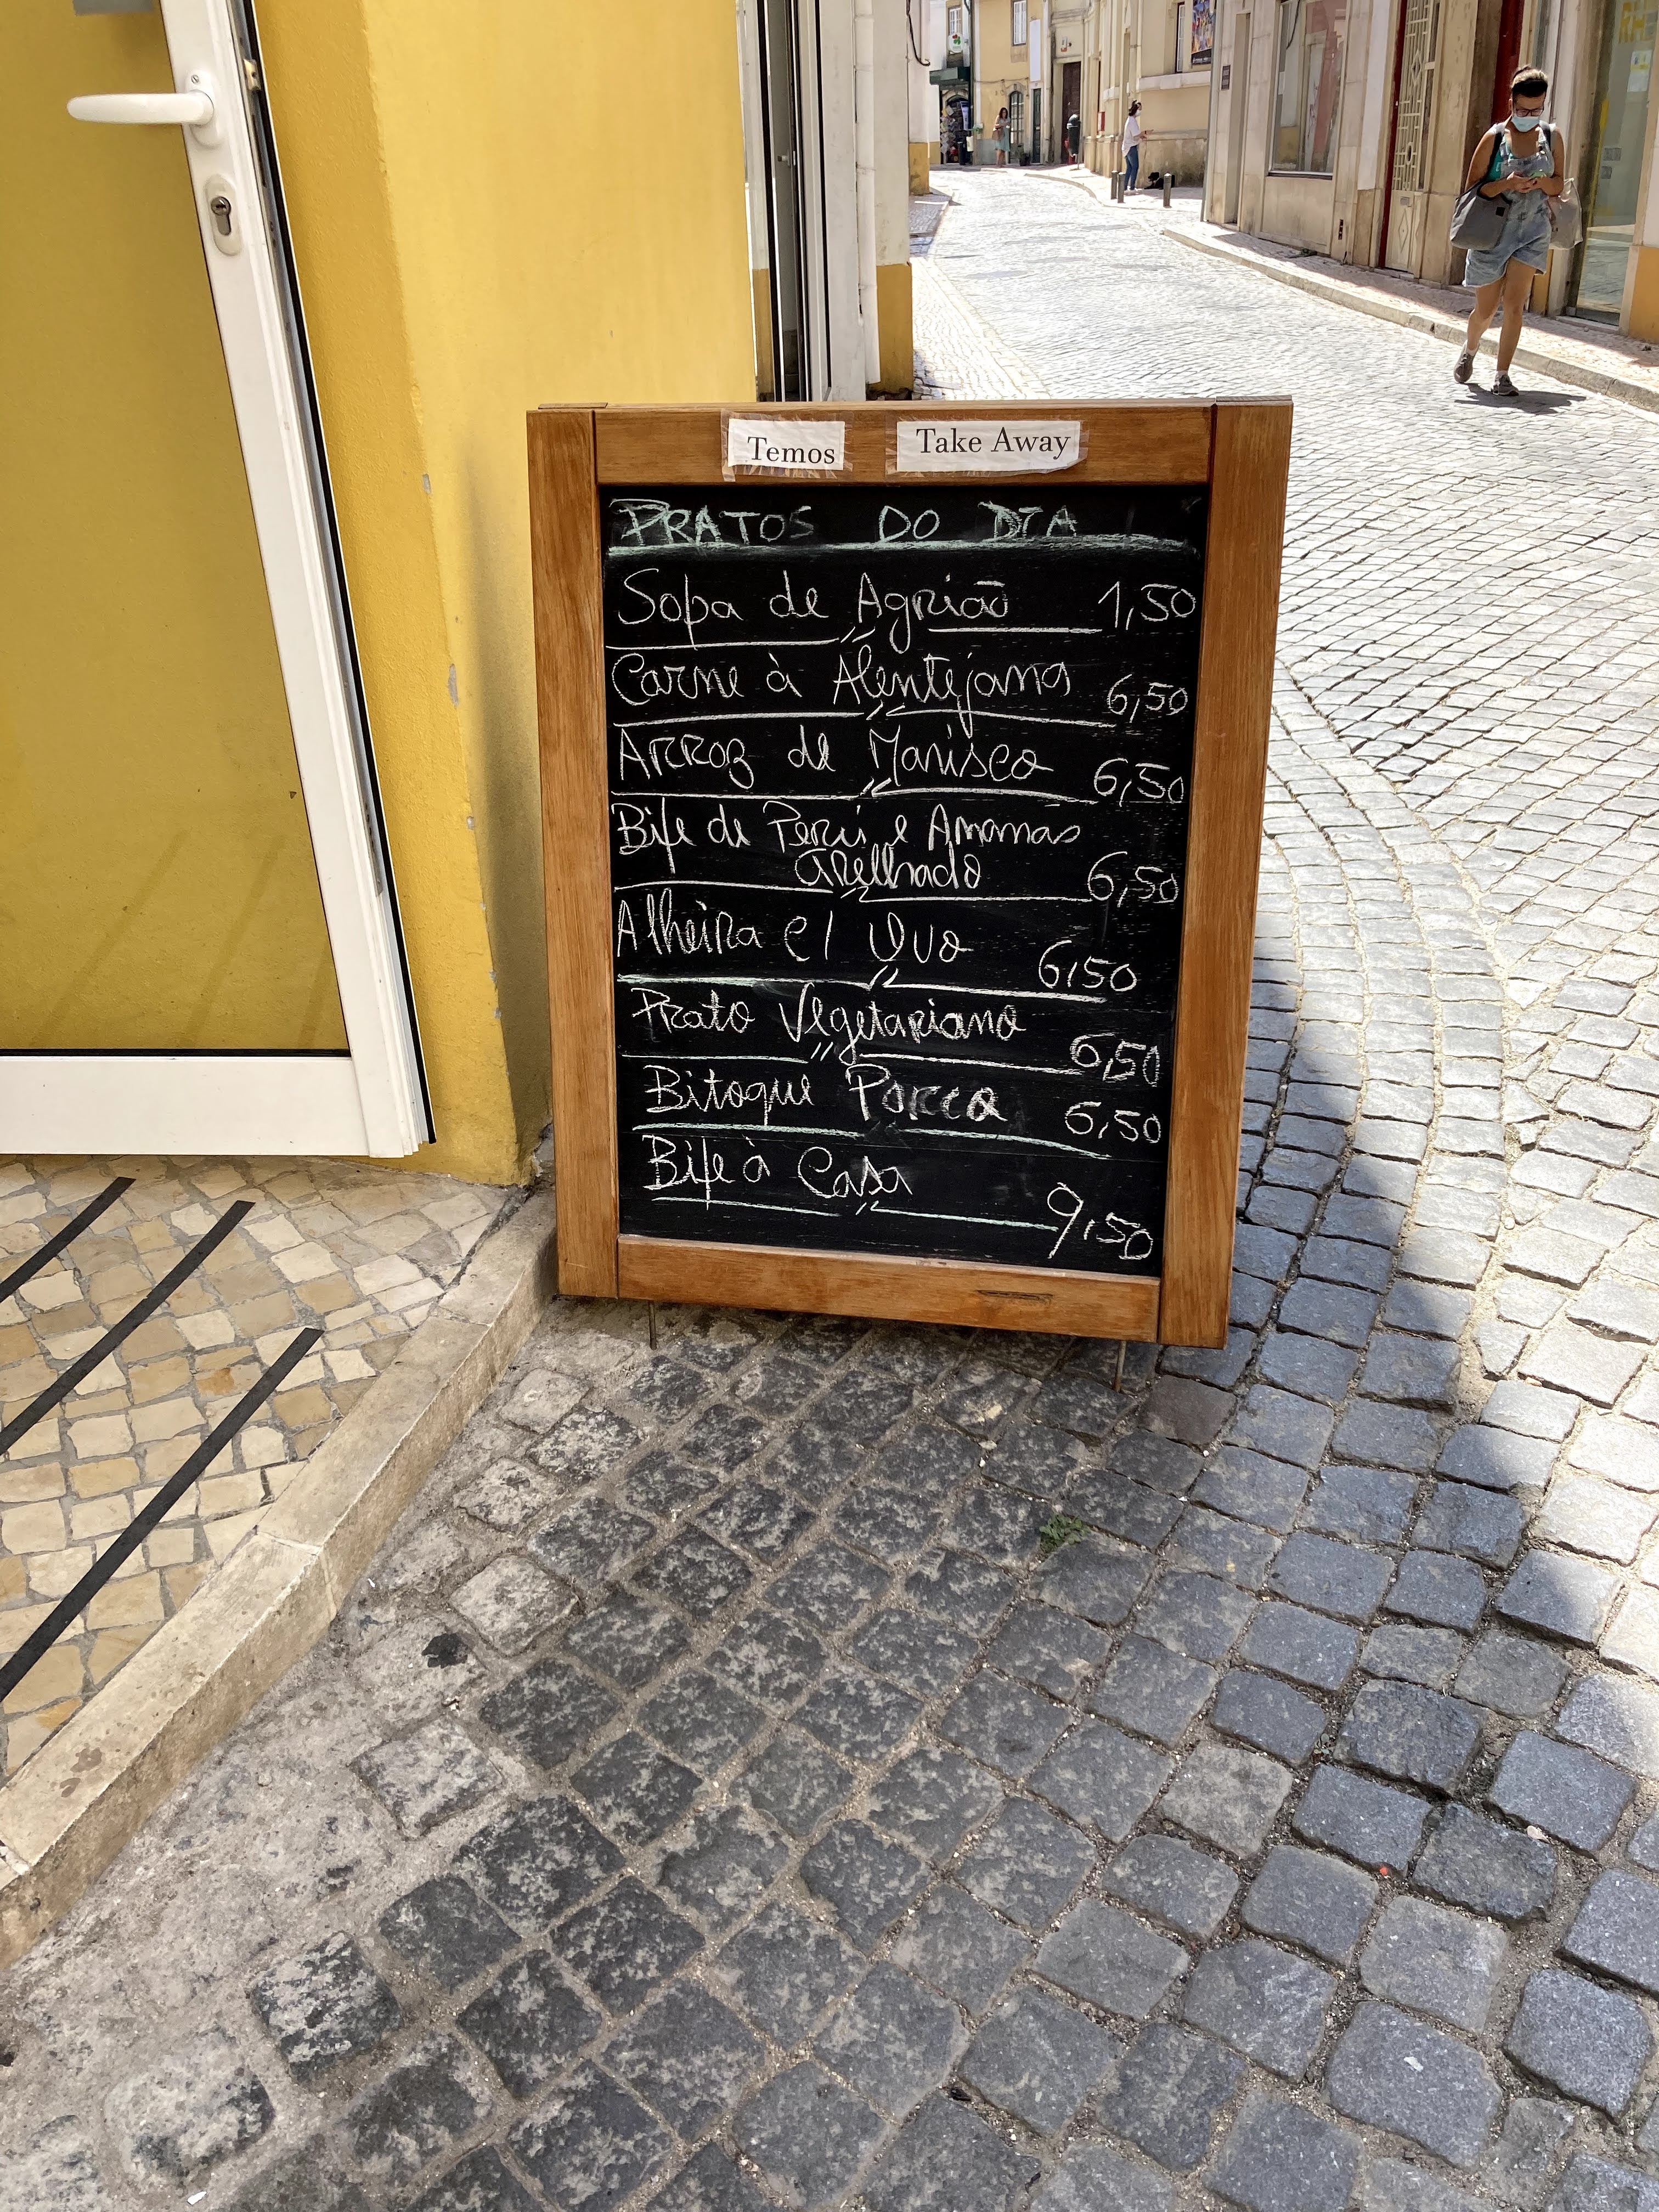 Temos Take Away
PRATOS DO DIA
Sopa de Agrião 1,50
Carne à Alentejana 6,50
Arroz de Marisco 6,50
Bife de Perú e Ananás
Grelhado 6,50
Alheira c/ Ovo 6,50
Prato Vegetariano 6,50
Bitoque Porco 6,50
Bife à Casa 9,50